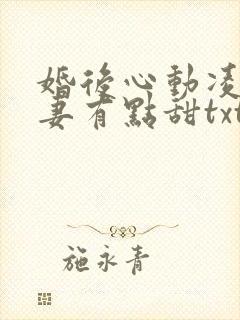 婚後心動凌
妻有點甜txt
施永青